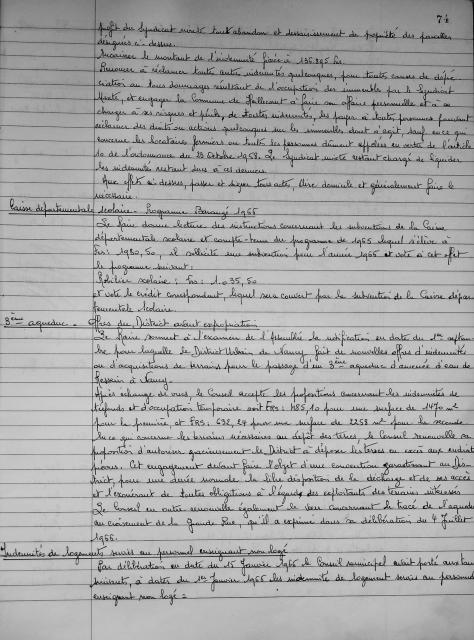 74
profit du Syndicat mixte tout abandon et dessaisissement de propriété des parcelles
désignées ci-dessus.
Encaisser le montant de l'indemnité fixée à 136.895 frs.
Renoncer à réclamer toute autre indemnité quelconque, pour toutes causes de dépré
ciation ou tous dommages résultant de l'occupation des immeubles par le Syndicat
Mixte, et engager la Commune de à faire son affaire personnelle et à se
charger à ses risques et périls, de toutes indemnités, à les payer à toutes personnes pouvant
réclamer des droits ou actions quelconques sur les immeubles dont il s'agit, sauf en ce qui
concerne les locataires, fermiers ou toutes les personnes dûment appelées en vertu de l'article
10 de l'ordonnance du 23 Octobre 1958. Le Syndicat mixte restant chargé de liquider
les indemnités restant dues à ces derniers.
Aux effets ci-dessus, passer et signer tous actes, élire domicile et généralement faire le
nécessaire.
Caisse départementale scolaire - Programme Barangé 1966
Le Maire donne lecture des instructions concernant les subventions de la Caisse
départementale scolaire et compte-tenu du programme de 1965 lequel s'élève à
Frs : 1980,50, il sollicite une subvention pour l'année 1966 et vote à cet effet
le programme suivant :
Mobilier scolaire : Frs : 1.035,50
et vote le crédit correspondant, lequel sera couvert par la subvention de la Caisse dépar
tementale scolaire.
3ème aqueduc - Offres du District avant expropriation
Le Maire soumet à l'examen de l'Assemblée la notification en date du 1er septem
bre pour laquelle le District Urbain de Nancy, fait de nouvelles offres d'indemnités
ou d'acquisitions de terrains pour le passage d'un 3ème aqueduc d'amenée d'eau de
Messein à Nancy.
Après échange de vues, le Conseil accepte les propositions concernant les indemnités de
tréfonds et d'occupation temporaire soit Frs : 485,10 pour une surface de 1470 m²
pour la première, et Frs : 632,24 pour une surface de 2258 m² pour la seconde.
En ce qui concerne les terrains nécessaires au dépôt des terres, le Conseil renouvelle sa
proposition d'autoriser gracieusement le District à déposer les terres en excès aux endroits
prévus. Cet engagement devant faire l'objet d'une convention garantissant au Dis-
trict, pour une durée normale la libre disposition de la décharge et de ses accès
et l'exonérant de toutes obligations à l'égard des exploitants des terrains intéressés
Le Conseil en outre renouvelle également le vœu concernant le tracé de l'aqueduc
au croisement de la Grande Rue, qu'il a exprimé dans sa délibération du 4 Juillet
1966.
Indemnités de logement servies au personnel enseignant non logé
Par délibération en date du 15 Janvier 1966 le Conseil municipal avait porté aux taux
suivants, à dater du 1er Janvier 1966 les indemnités de logement servies au personnel
enseignant non logé :